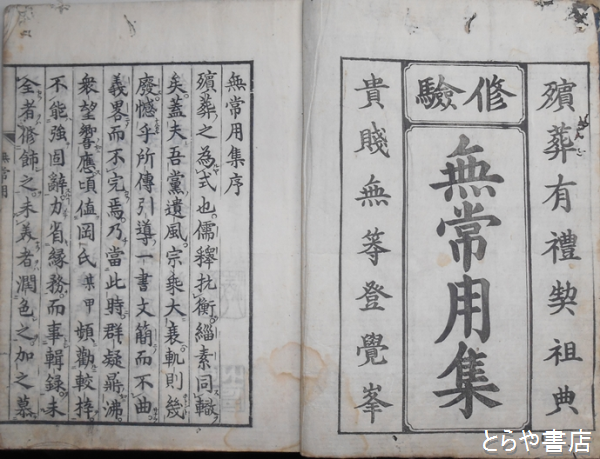 殯葬有禮契祖典
修驗
無常用集
貴賤無等登覺峯
無常用集序
殯葬之為式也儒釋抗衡緇素同轍
矣蓋夫吾黨遺風宗乘大衰軌則幾
廢憾乎所傳引導一書文簡而不曲
義畧而不完焉乃當此時群疑鼎沸
衆望響應頃値岡氏某甲頻勸較
不能強固辭力省縁務而事輯録未
全者修飾之未美者潤色之加之慕
無常用
とらや書店